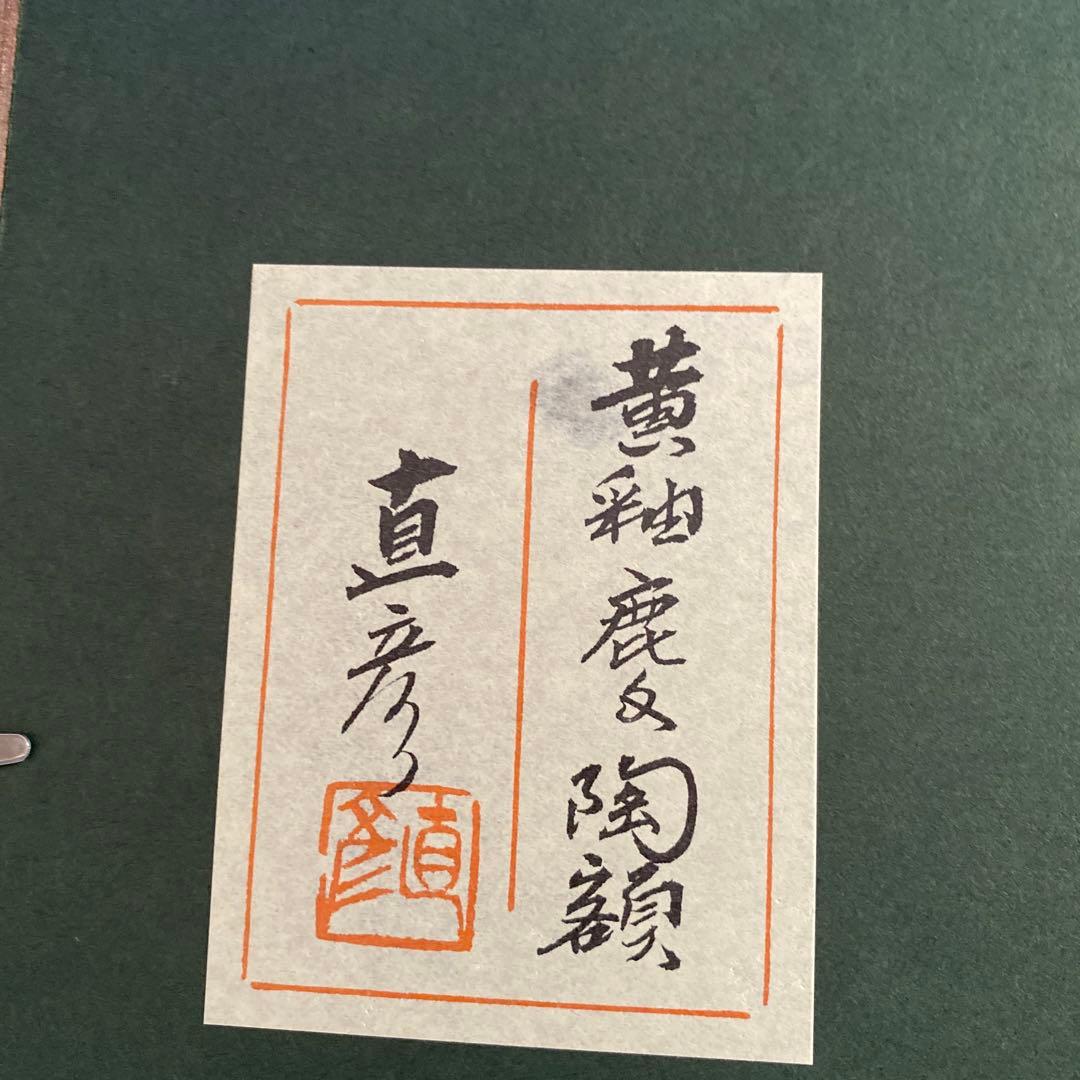 黄釉鹿文陶額
直彦
直彦